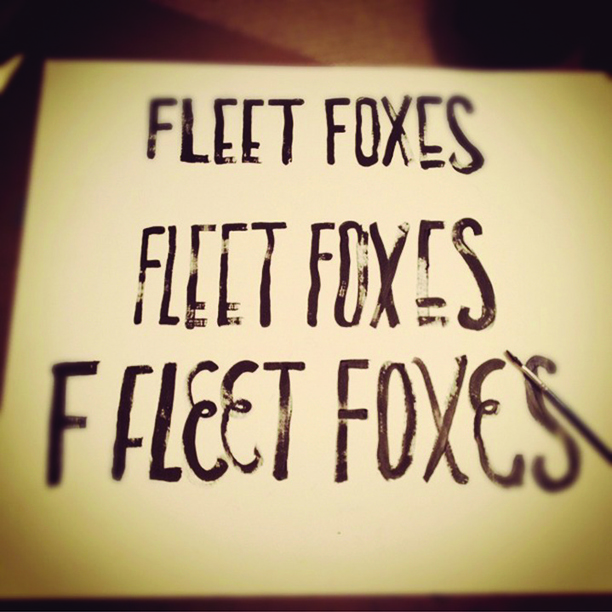 FLEET FOXES
FLEET FOXES
F FLEET FOXES